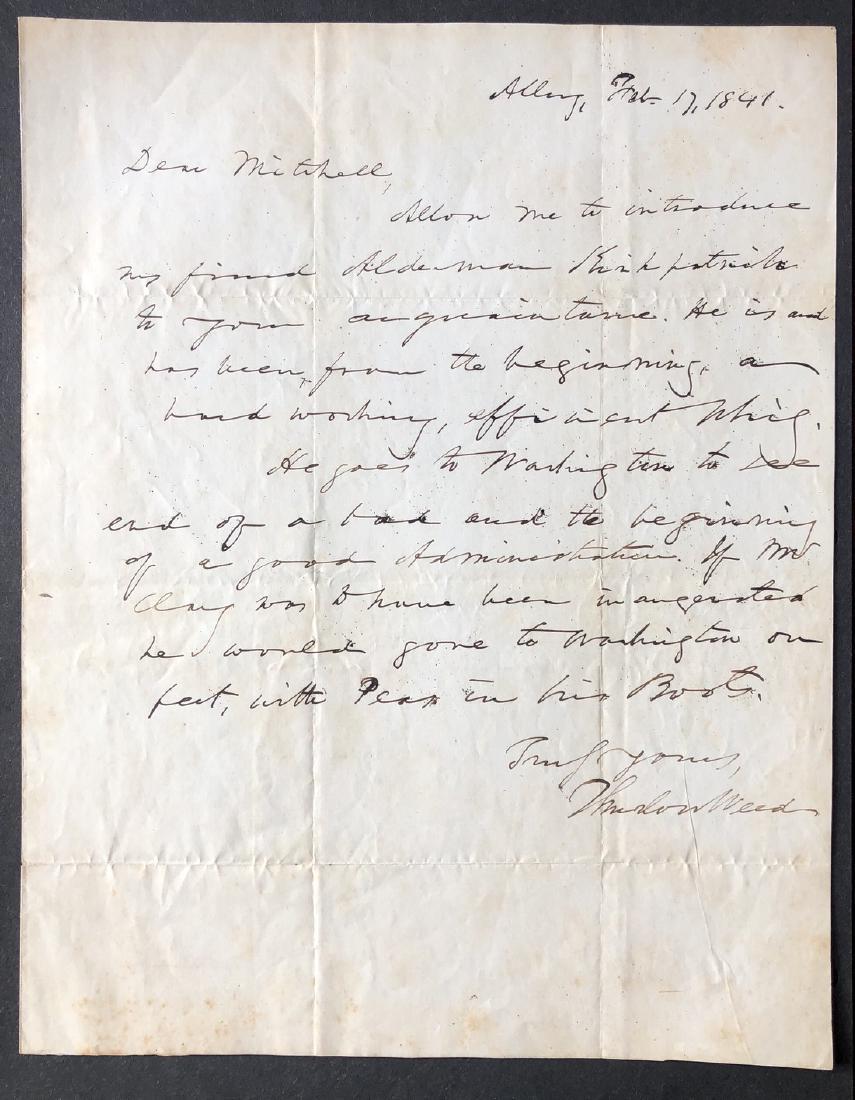 Albny, Feb. 17, 1841.
Dear Mitchell,
Allow me to introduce
my friend Alderman Kirkpatrick
to your acquaintance. He is and
has been, from the beginning, a
hard working, efficient Whig.
He goes to Washington to see
end of a bad and the beginning
of a good Administration. If Mr
Clay was to have been inaugerated
he would gone to Washington on
feet, with Peas in his Boots.
Truly yours,
Thurlow Weed